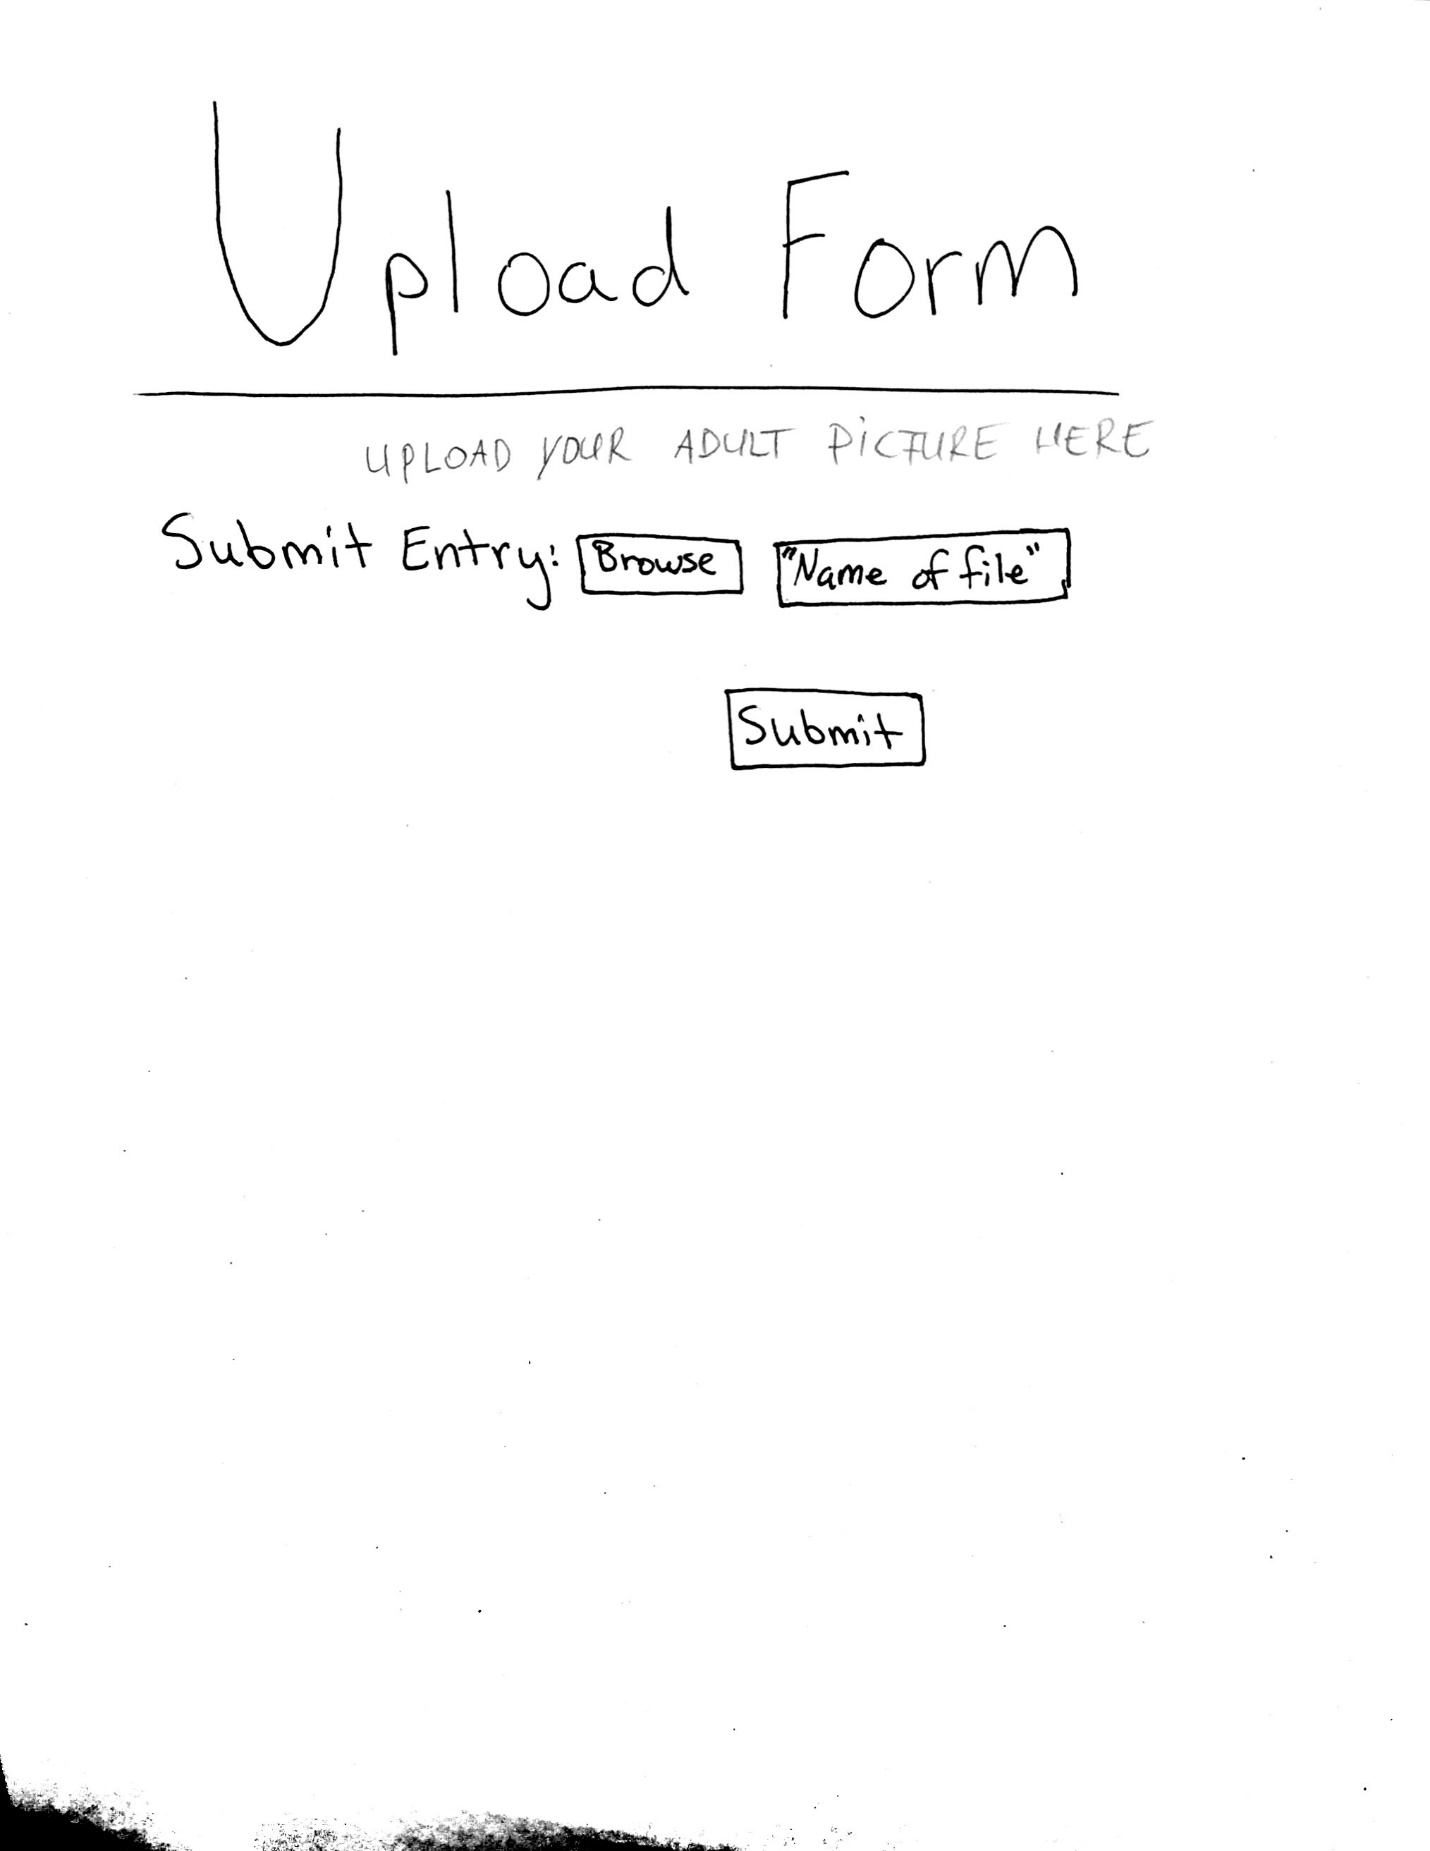 Upload Form
UPLOAD YOUR ADULT PICTURE HERE
Submit Entry: Browse "Name of file"
Submit